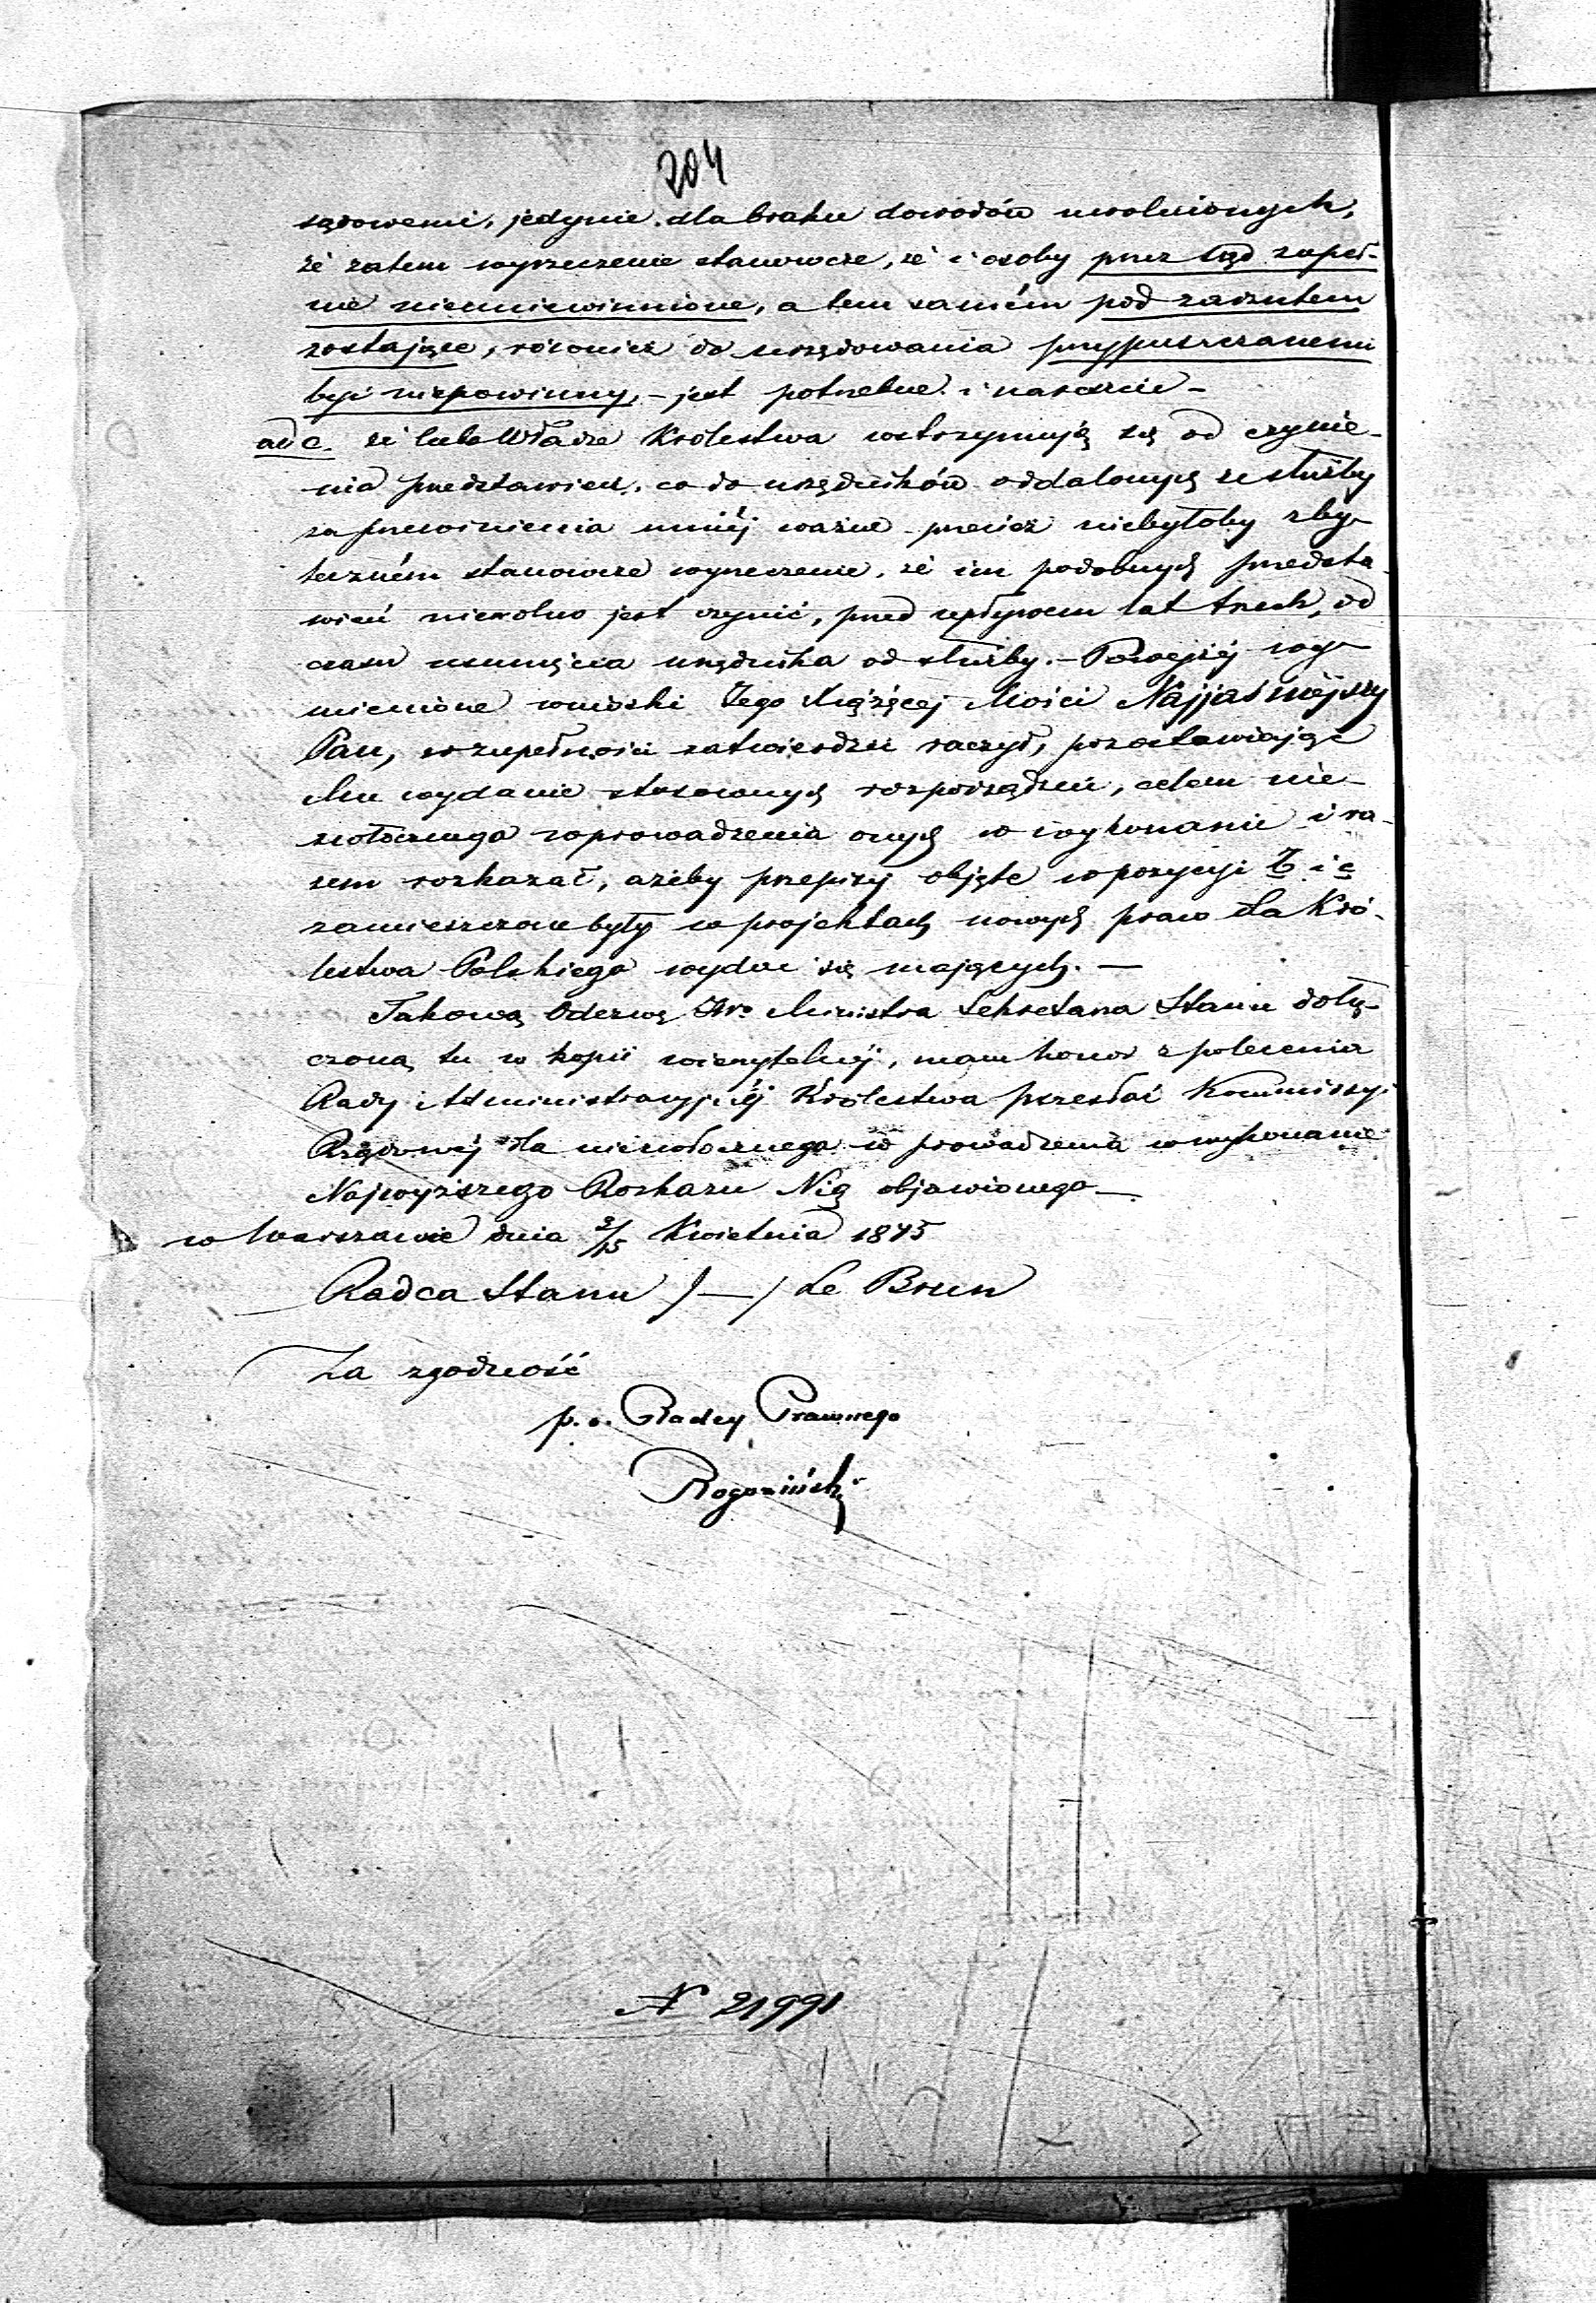 204
sądowemi, jedynie dla braku dowodów uwolnionych,
że zatem wyrzeczenie stanowcze, że i osoby przez Sąd zupeł-
nie nieuniewinnione, a tem samém pod zarzutem
zostające, również do urzędowania przypuszczanemi
być niepowinny, – jest potrzebne i nareszcie –
ad c. że lubo Władze Królestwa wstrzymują się od czynie-
nia przedstawień, co do urzędników oddalonych ze służby
za przewinienia mniéj ważne przecież niebyłoby zby-
teczném stanowcze wyrzeczenie, że im podobnych przedsta-
wień niewolno jest czynić, przed upływem lat trzech, od
czasu usunięcia urzędnika od służby. – Powyżéj wy-
mienione wnioski Jego Xiążęcej Mości Najjaśniejszy
Pan, w zupełności zatwierdzić raczył, pozostawiając
Mu wydanie stosownych rozporządzeń, celem nie-
zwłocznego wprowadzenia onych w wykonanie i ra-
zem rozkazał, ażeby przepisy objęte w pozycyi b i c
zamieszczone były w projektach nowych praw dla Kró-
lestwa Polskiego wydać się mających. —
Takową Odezwę JW. Ministra Sekretarza Stanu dołą-
czoną tu w kopii wierzytelnéj, mam honor z polecenia
Rady Administracyjnéj Królestwa przesłać Kommissyi
Rządowéj dla niezwłocznego wprowadzenia w wykonanie
Najwyższego Rozkazu Nią objawionego —
w Warszawie dnia 3/15 Kwietnia 1845
Radca Stanu /—/ Le Brun
Za zgodność
p. o. Radcy Prawnego
Rogoziński
N 21991